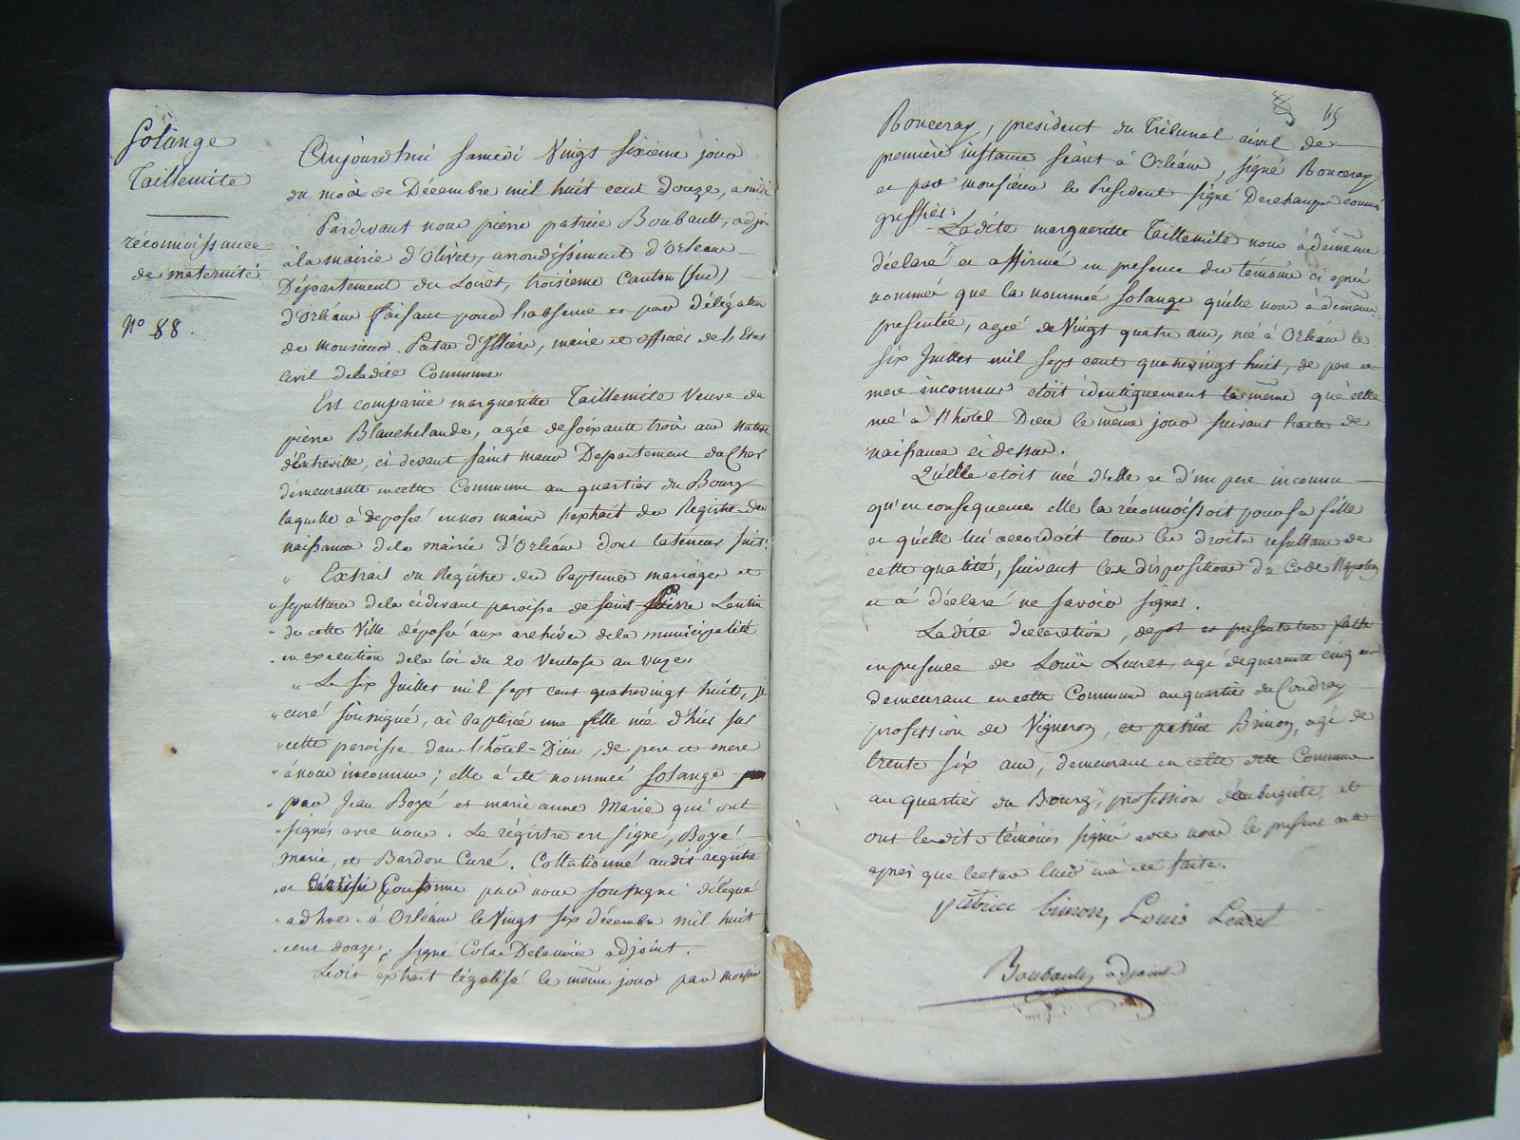 Solange
Taillemite
réconnoissance
de maternité
N° 88.
Aujourd'hui samedi Vingt sixieme jour
du mois de Décembre mil huit cent douze, a midi
Pardevant nous pierre patrice Boubault, adjoint
à la mairie d'Olivet, arrondissement d'Orleans
Département du Loiret, troisieme Canton (sud)
d'Orléans faisant pour l'absence et par délégation
de Monsieur d'Illiers, maire et officier de l'Etat
Civil de ladite Commune
Est comparüe margueritte Taillemite Veuve de
pierre Blanchelande, agée de soixante trois ans Native
ci devant saint Departement du Cher
demeurante en cette Commune au quartier du Bourg
laquelle à deposé en nos mains l'extrait du Registre des
naissances de la mairie d'Orléans dont la teneur suit:
" Extrait du Registre des baptemes mariages et
" sepultures de la cidevant paroisse de saint pierre Lentin
- de cette Ville déposé aux archives de la municipalité
- en execution de la loi du 20 Ventose an onze
" Le six Juillet mil sept cent quatrevingt huit, je
" curé soussigné, ai baptisé une fille née d'hier sur
" cette paroisse dans l'hôtel-Dieu, de pere et mere
- à nous inconnus; elle à été nommée Solange
- par Jean Boyé et marie anne Marie qui ont
- signés avec nous. Le régistre est signé, Boyé
- marie, et Bardon Curé. Collationné audit registre
- et Certifié Conforme par nous soussigné délégué
- ad hoc. à Orléans le Vingt six décembre mil huit
- cent douze; signé Colas Delanoüe adjoint.
Ledit extrait légalisé le même jour par Monsieur
65
Ronceray, president du Tribunal civil de
premiere instance séant à Orléans, signé Ronceray
et par Monsieur le President signé Deschamps commis
greffier.
Ladite margueritte Taillemite nous à de même
déclaré et affirmé en presence des témoins ci après
nommés que la nommée Solange qu'elle nous à de même
presentée, agée de Vingt quatre ans, née à Orléans le
six Juillet mil sept cent quatrevingt huit, de pere et
mere inconnus étoit identiquement la même que celle
née à l'hôtel Dieu le même jour suivant l'acte de
naissance ci dessus.
Qu'elle etoit née d'elle et d'un pere inconnu
qu'en consequence elle la réconnoissoit pour sa fille
et qu'elle lui accordoit tous les droits resultans de
cette qualité, suivant les dispositions du Code Napoléon
et à déclaré ne savoir signer.
Ladite declaration, depot et presentation faite
en presence de Louis Levret agé de quarante cinq ans
demeurant en cette Commune au quartier du Coudray
profession de Vigneron, et patrice Brinon, agé de
trente six ans, demeurant en cette Commune
au quartier du Bourg, profession d'aubergiste, et
ont lesdits témoins signé avec nous le present acte
après que lecture leur en à été faite.
patrice brinon, Louis Levret
Boubault adjoint